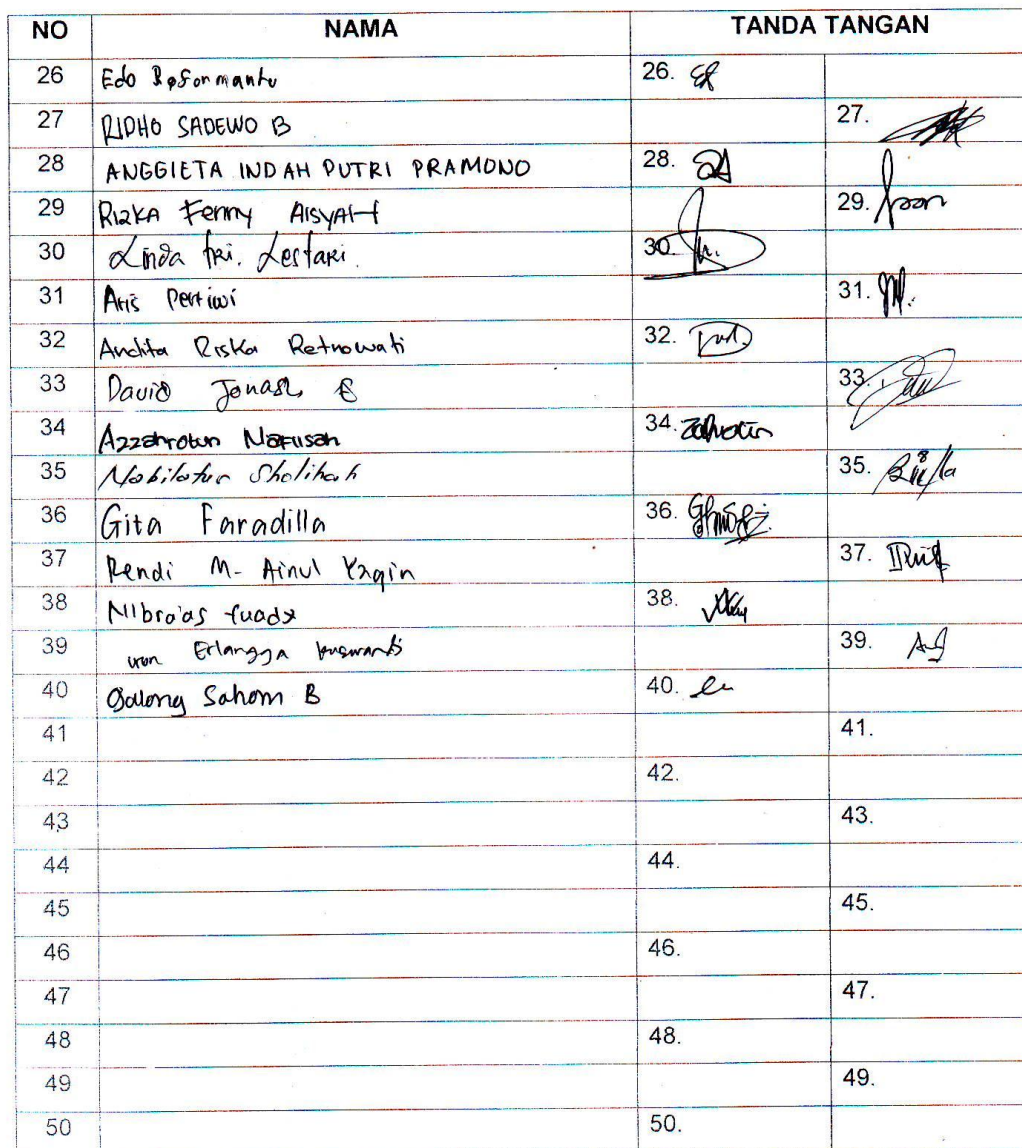 NO NAMA TANDA TANGAN
26 Edo Reformanto 26.
27 RIDHO SADEWO B 27.
28 ANGGIETA INDAH PUTRI PRAMONO 28.
29 RIZKA FENNY AISYAH 29.
30 Linda Tri. Lestari. 30.
31 Aris Pertiwi 31.
32 Andita Riska Retnowati 32.
33 David Jonash 33.
34 Azzahrotun Nafusah 34.
35 Nabilatur Sholihah 35.
36 Gita Faradilla 36.
37 Rendi M- Ainul Yaqin 37.
38 Nibra'as 38.
39 Erlangga 39.
40 B 40.
41 41.
42 42.
43 43.
44 44.
45 45.
46 46.
47 47.
48 48.
49 49.
50 50.